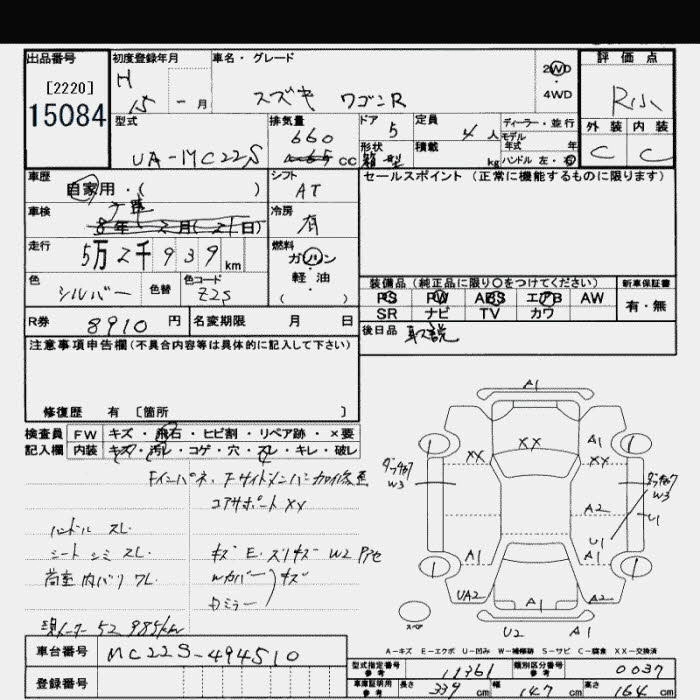 出品番号 初度登録年月 車名・グレード 2WD 評価点
[2220] H 4WD R小
15084 15 - 月 スズキ ワゴンR
型式 排気量 ドア 定員 ディーラー・並行 外装 内装
UA-MC22S 660 5 4人 モデル年式 年 C C
cc 形状 箱型 積載 kg ハンドル 左・右
車歴 シフト セールスポイント (正常に機能するものに限ります)
自家用・( ) AT
車検 冷房
8年 2月(21日) 有
走行 燃料
5万2千939km ガソリン
色 色替 色コード 軽・油 装備品 (純正品に限り○をつけてください) 新車保証書
シルバー Z2S ( ) PS PW ABS エアB AW 有・無
SR ナビ TV カワ
R券 8910円 名変期限 月 日 後日品 取説
注意事項申告欄(不具合内容等は具体的に記入して下さい)
修復歴 有 〔箇所 〕
検査員 FW キズ・飛石・ヒビ割・リペア跡・×要
記入欄 内装 キズ・汚レ・コゲ・穴・スレ・キレ・破レ
コアサポートXX
ハンドル スレ
シート シミ スレ
荷室内バリ ワレ
現メーター 52985km
A1
XX XX A1 XX
W3 W3
A2
U1 U1
A1 A1
UA2 A1 A2
スペア U2 A1
A-キズ E-エクボ U-凹み W-補修跡 S-サビ C-腐食 XX-交換済
車台番号 MC22S-494510
型式指定番号 参考 11361 類別区分番号 参考 0037
登録番号 車庫証明用 参考 長さ 339cm 幅 147cm 高さ 164cm